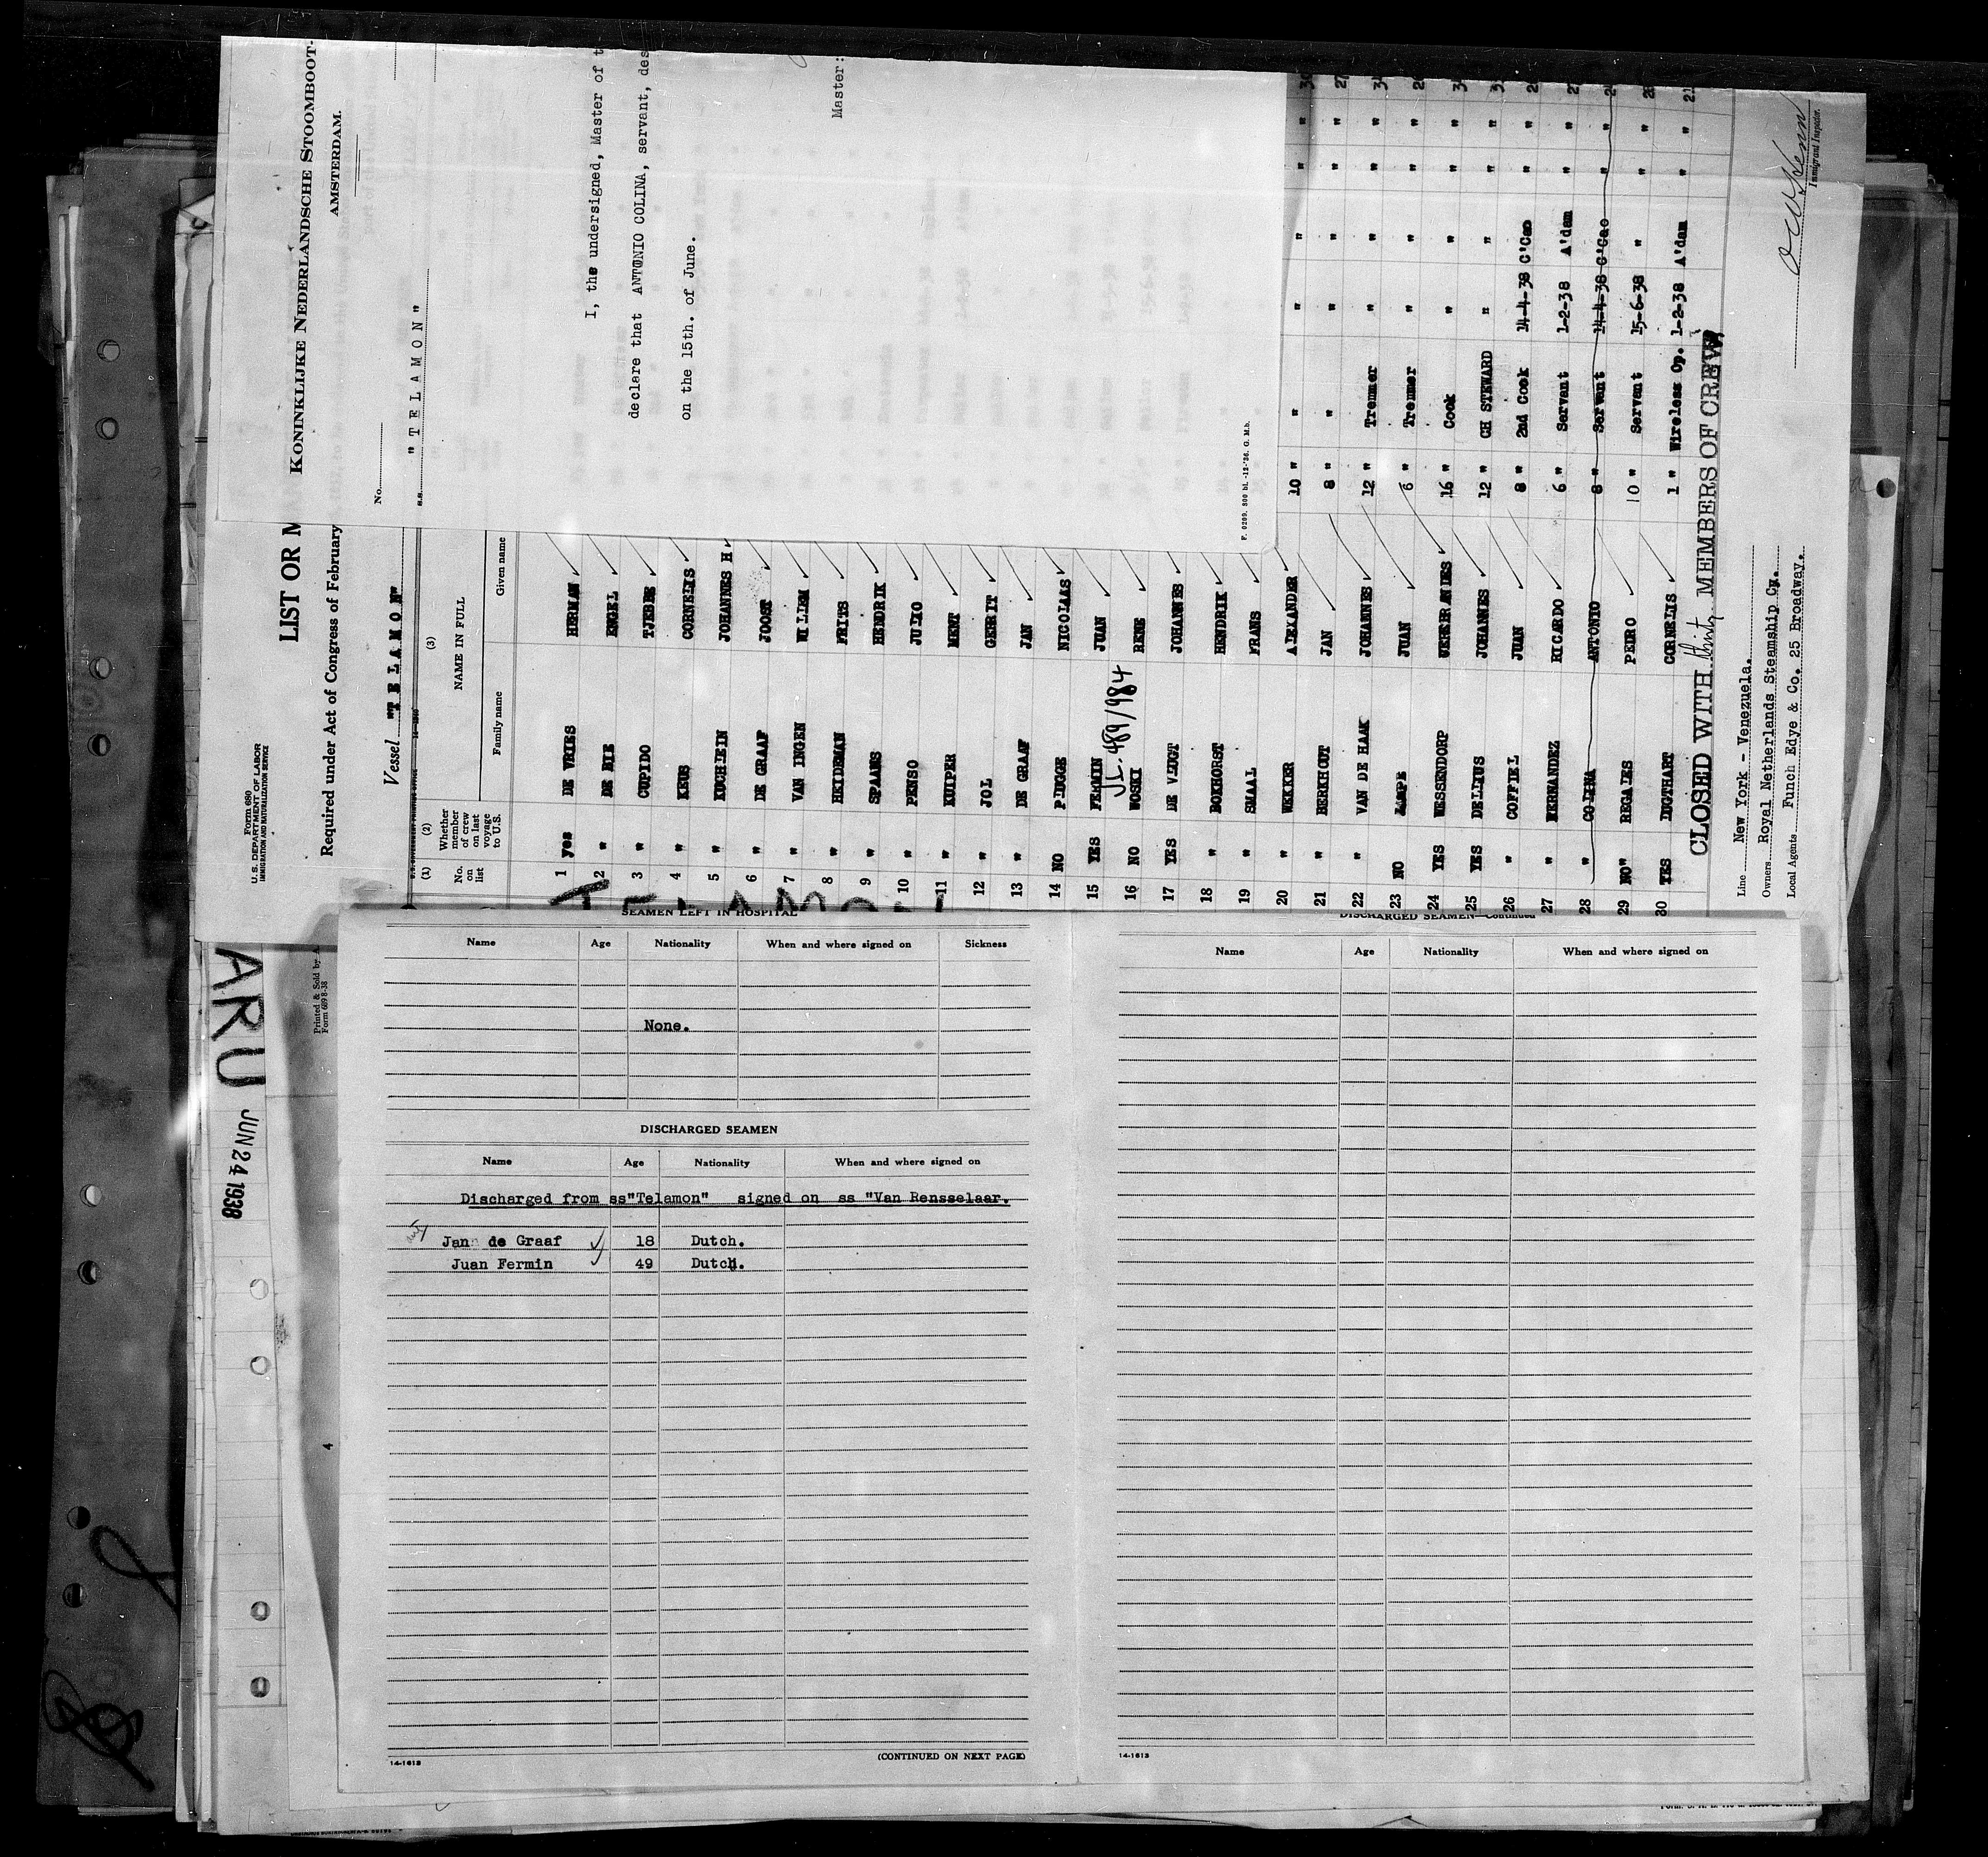 KONINKLIJKE NEDERLANDSCHE STOOMBOOT-
AMSTERDAM.
No.
s.s. "TELAMON"
I, the undersigned, Master of t
declare that ANTONIO COLINA, servant, des
on the 15th. of June.
Master:
F. 0209. 500 bl. -12-'36. G. M.b.
Form 680
U. S. DEPARTMENT OF LABOR
IMMIGRATION AND NATURALIZATION SERVICE
LIST OR M
Required under Act of Congress of February
Vessel "TELAMON"
(1) (2) (3)
No. on list Whether member of crew on last voyage to U.S. NAME IN FULL
Family name Given name
1 yes DE VRIES HERMAN
2 " DE BIE ENGEL
3 " CUPIDO TJEBBE
4 " KEUS CORNELIS
5 " KUCHLEIN JOHANNES H
6 " DE GRAAF JOOST
7 " VAN INGEN WILLEM
8 " HEIDEMAN FRITS
9 " SPAANS HENDRIK
10 " PENSO JULIO
11 " KUIPER MENT
12 " JOL GERRIT
13 " DE GRAAF JAN
14 NO PLUGGE NICOLAAS
15 YES FERMIN JUAN
16 NO WOSKI RENE
17 YES DE VLUGT JOHANNES
18 " BOKHORST HENDRIK
19 " SMAAL FRANS
20 " WEKKER ALEXANDER 10 " " " " " " 30
21 " BERKHOUT JAN 8 " " " " " " 27
22 " VAN DE HAAK JOHANNES 12 " Tremmer " " " "
23 NO JUAN 6 " Tremmer " " " "
24 YES WESSENDORP 16 " Cook " " " "
25 YES DELIUS JOHANNES 12 " CH STEWARD " " " "
26 " COFFIEL JUAN 8 " 2nd Cook 14-4-38 C'Cao " "
27 " HERNANDEZ RICARDO 6 " Servant 1-2-38 A'dam " "
28 " COLINA ANTONIO 8 " Servant 14-4-38 C'Cao " "
29 NO" REGALES PEDRO 10 " Servant 15-6-38 " " "
30 YES DUGTHART CORNELIS 1 " Wireless Op. 1-2-38 A'dam " " 21
CLOSED WITH thirty MEMBERS OF CREW
Line New York - Venezuela.
Owners Royal Netherlands Steamship Cy.
Local Agents Funch Edye & Co. 25 Broadway.
Immigrant Inspector.
ARU
JUN 24 1938
Printed & Sold by A
4
SEAMEN LEFT IN HOSPITAL
Name Age Nationality When and where signed on Sickness
None.
DISCHARGED SEAMEN
Name Age Nationality When and where signed on
Discharged from ss"Telamon" signed on ss "Van Rensselaar.
Jan de Graaf 18 Dutch.
Juan Fermin 49 Dutch.
14-1613
(CONTINUED ON NEXT PAGE)
DISCHARGED SEAMEN—Continued
Name Age Nationality When and where signed on
14-1613